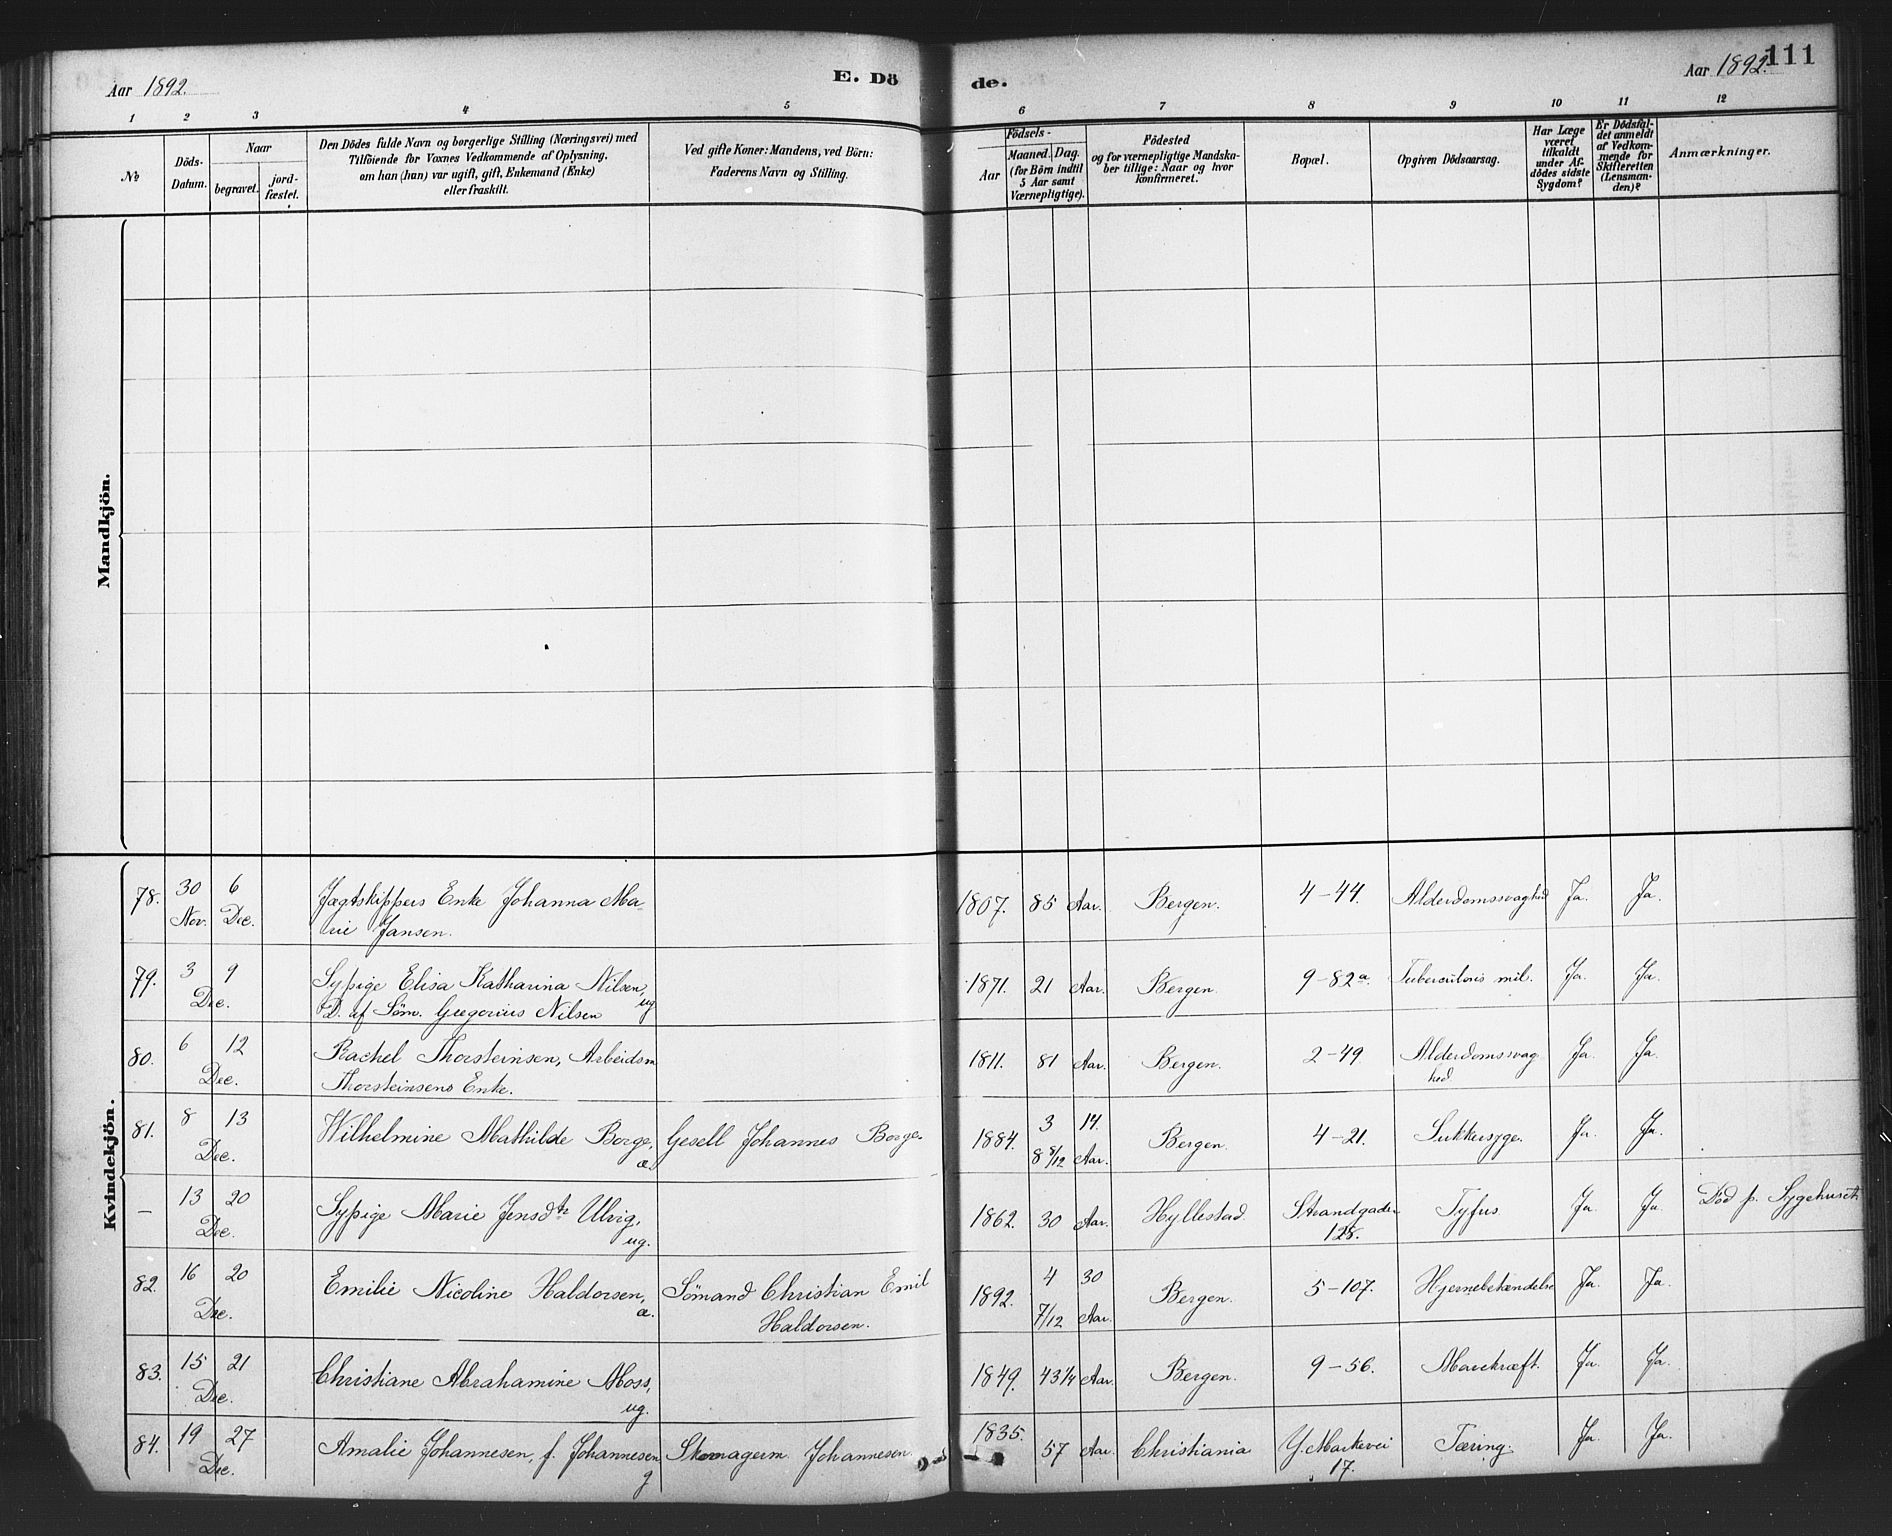 Aar 1892.
E. Dö
de.
Aar 1892.
111
1 2 3 4 5 6 7 8 9 10 11 12
№
Döds-
Datum.
Naar
begravet.
jord-
fæstet.
Den Dödes fulde Navn og borgerlige Stilling (Næringsvei) med
Tilföiende for Voxnes Vedkommende af Oplysning,
om han (hun) var ugift, gift, Enkemand (Enke)
eller fraskilt.
Ved gifte Koner: Mandens, ved Börn:
Faderens Navn og Stilling.
Födsels-
Aar
Maaned. Dag.
(for Börn indtil
5 Aar samt
Værnepligtige).
Födested
og for værnepligtige Mandska-
ber tillige: Naar og hvor
konfirmeret.
Bopæl.
Opgiven Dödsaarsag.
Har Læge
været
tilkaldt
under Af-
dödes sidste
Sygdom?
Er Dödsfal-
det anmeldt
af Vedkom-
mende for
Skifteretten
(Lensman-
den)?
Anmærkninger.
Mandkjön.
Kvindekjön.
78. 30 Nov. 6 Dec. Jagtskippers Enke Johanna Ma-
rie Jansen. 1807. 85 Aar. Bergen. 4-44. Alderdomssvaghed Ja. Ja.
79. 3 9 Dec. Sypige Elisa Katharina Nilsen, ug
D. af Söm. Gregorius Nilsen 1871. 21 Aar. Bergen. 9-82a. Tuberculosis mil. Ja. Ja.
80. 6 12 Dec. Rachel Thorsteinsen, Arbeidsm
Thorsteinsens Enke. 1811. 81 Aar. Bergen. 2-49. Alderdomssvag
hed. Ja. Ja.
81. 8 13 Dec. Wilhelmine Mathilde Borge, æ. Gesell Johannes Borge. 1884. 3 14. 8 8/12 Aar. Bergen. 4-21. Sukkusyge. Ja. Ja.
– 13 20 Dec. Sypige Marie Jensdtr Ulvig, ug. 1862. 30 Aar. Hyllestad. Strandgaden
128. Tyfus. Ja. Ja. Död p. Sygehuset
82. 16 20 Dec. Emilie Nicoline Haldorsen, æ. Sömand Christian Emil
Haldorsen. 1892. 4 30 7/12 Aar. Bergen. 5-107. Hjernebetændelse Ja. Ja.
83. 15 21 Dec. Christiane Abrahamine Moss, ug. 1849. 43 1/4 Aar. Bergen. 9-56. Mavekræft. Ja. Ja.
84. 19 27 Dec. Amalie Johannesen, f. Johannesen g Skomagerm. Johannesen 1835. 57 Aar. Christiania Y. Markevei
17. Tæring. Ja. Ja.